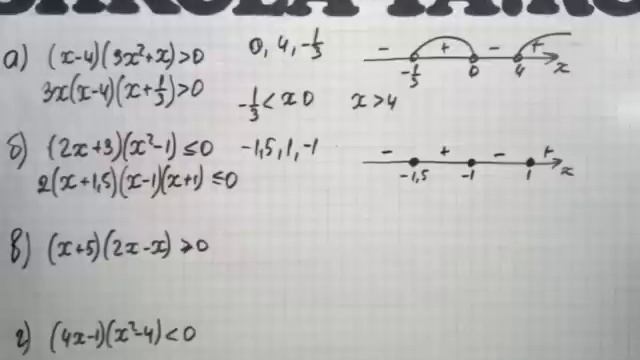 SHKOLA YA.RU
а) (x-4)(3x²+x)>0 0, 4, -1/3
3x(x-4)(x+1/3)>0
- + - +
-1/3 0 4 x
-1/3 < x 0 x>4
б) (2x+3)(x²-1)≤0 -1,5, 1, -1
2(x+1,5)(x-1)(x+1)≤0
- + - +
-1,5 -1 1 x
в) (x+5)(2x-x)≥0
г) (4x-1)(x²-4)<0